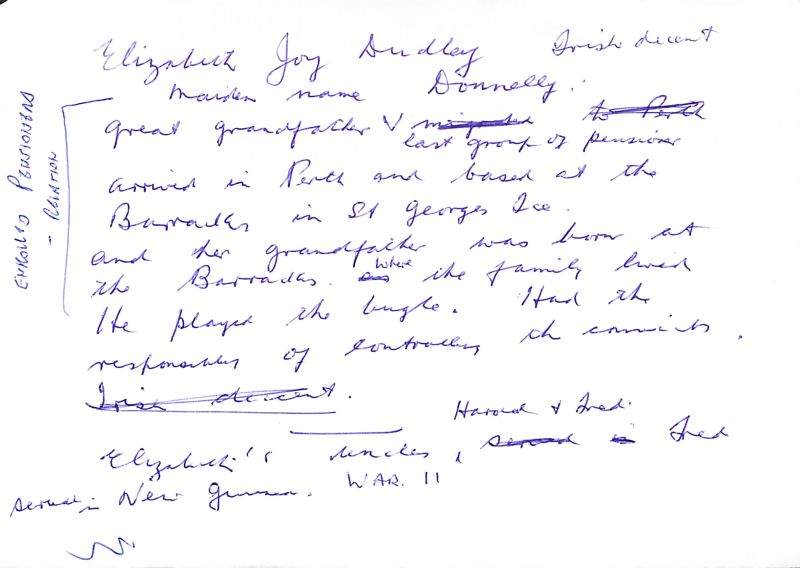 Elizabeth Joy Dudley Irish decent
Maiden name Donnelly.
ENROLLED PENSIONERS
- RELATION
Great grandfather migrated to Perth
last group of pensioner
arrived in Perth and based at the
Barracks in St Georges Tce.
and her grandfather was born at
the Barracks. where the family lived
He played the bugle. Had the
responsibility of controlling the convicts.
Irish decent.
Harold & Fred.
Elizabeth's uncles, served in Fred
served in New Guinea. WAR. II